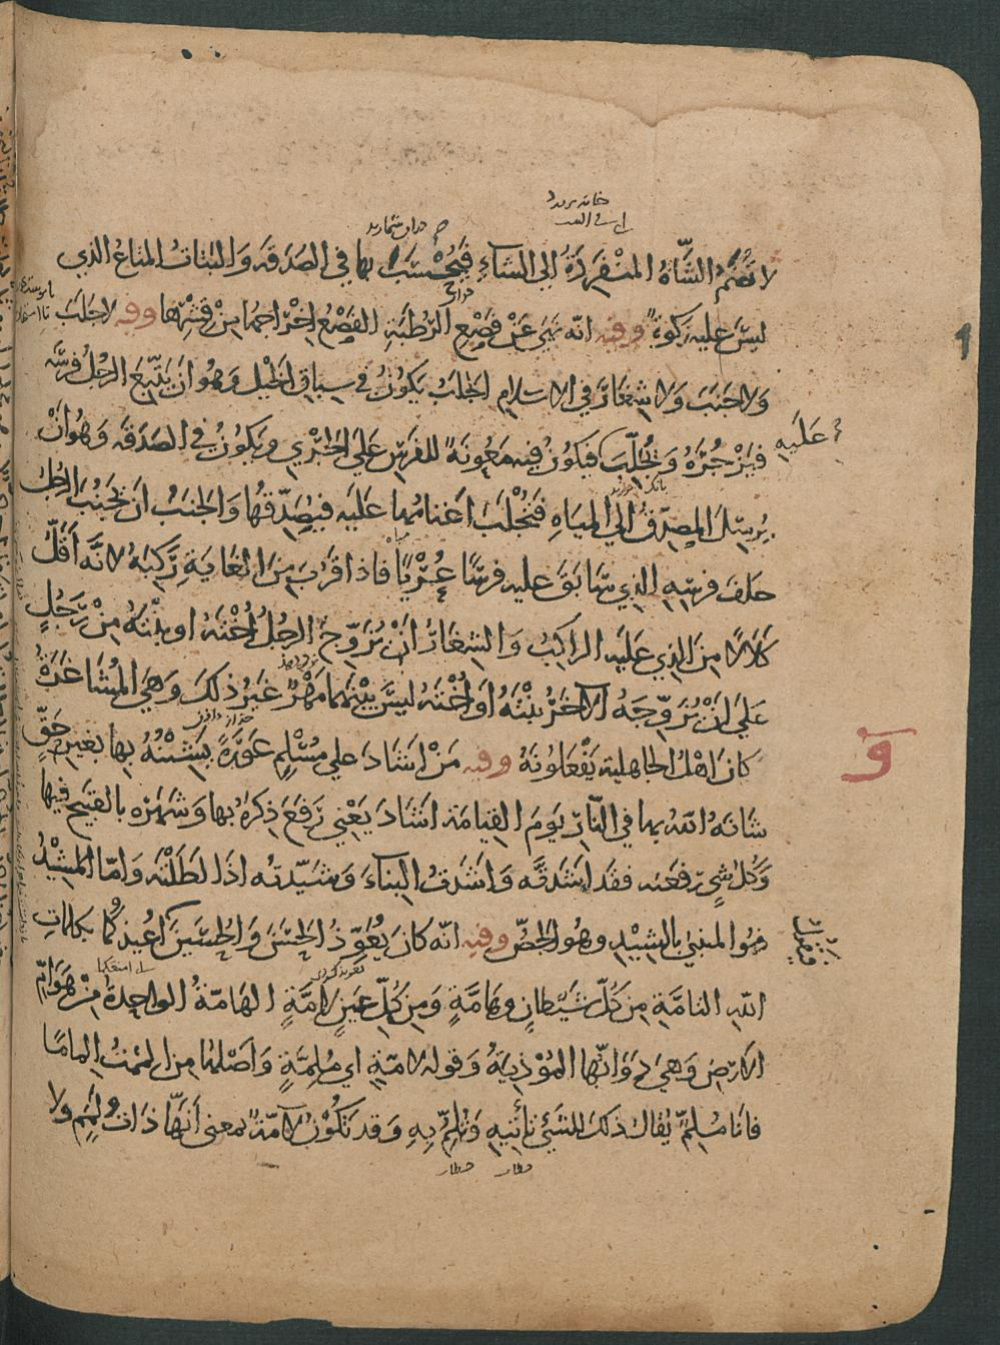 لا تُضَمُّ الشَّاةُ المنْفَرِدَةُ الى الشاءِ فَيُحْتَسَبُ بها في الصَدَقَه وَالبَتَاتُ المتَاعُ الذي
ليسَ عليه زكوةٌ وفيه انّه نهى عَنْ قَصْعِ الرُطَبَةِ القَصْعُ اخراجها مِنْ قشرها وفيه لا جَلَبَ
وَلا جَنَبَ وَلا شِغَارَ في الاسلامِ الجَلَبُ يَكوُنُ في سِبَاقِ الخَيْلِ وَهُو أن يَتْبَعَ الرجُلُ فرسَه
عَلَيهِ
فيَزْجُرَهُ وَيُجَلّبَ فَيكوُنُ فيه مَعُونَةً للفَرَسِ عَلَى الجَرْيِ وَيكوُنُ في الصَدَقَه وَهُو أنْ
يُرسِلَ المصَدّقُ الى المِيَاهِ فتُجْلَبَ اغنامُهَا عَلَيه فيُصَدّقهُا وَالجَنَبُ ان يَجْنُبَ الرجُلُ
خلفَ فرسِهِ الذي سَابَقَ عليه فرسًا عُرْيًا فاذا قرُبَ مِنَ الغَايَةِ رَكبَهُ لانّه أقَلُّ
كَلاَلًا مِنَ الذي عَلَيه الراكِبُ وَالشِغَارُ أنْ يُزَوّجَ الرجُلُ أُخْتَهُ او بنْتَهُ مِنْ رَجُلٍ
عَلَى انْ يُزَوّجَهُ الآخَرُ بنْتَهُ أو اُخْتَهُ ليسَ بيْنَهُما مَهْرٌ غيرُ ذلكَ وَهيَ المُشَاغَرَةُ
كانَ اهْلُ الجاهلية يَفْعَلُونَهُ وفيه مَنْ اشَادَ على مُسْلِمٍ عَوْرَةً يَشِيْنُهُ بها بغيرِ حَقٍّ
و
شانَهُ اللهُ بها في النّارِ يَوْمَ القيامَة اشَادَ يَعْني رَفَعَ ذِكرَهُ بها وَشَهَرَه بالقبيح فيها
وَكلُّ شيءٍ رفعتَه فقد اشَدتَه وَاشَدتُ البنَاءَ وَشَيّدتُه اذَا طَوَّلْتَه وَامّا المَشِيْدُ
فهُو المَبنيُّ بالشِيْدِ وهُو الجَصُّ وفيه انّه كانَ يُعَوّذُ الحَسَنَ وَالحُسَينَ اُعيذُكُمَا بكلماتِ
اللهِ التامَّةِ مِن كُلّ شَيْطانٍ وهَامَّةٍ وَمِن كُلّ عَينٍ لامَّةٍ الهَامّةُ الواحِدةُ مِنْ هَوَامِّ
الارَضِ وَهيَ دَوَابّهَا المُؤْذِيَةُ وَقوله لامّةٍ اي مُلِمَّةٍ وَاَصْلهَا مِن المَمْتُ إلمامًا
فانَا مُلِمٌّ يُقَالُ ذلكَ للشيءِ تأتيهِ وَتُلِمُّ بِهِ وَقد تكوُنُ لامّةً بمعنى أنّهَا ذَاتُ لَمَمٍ ولا